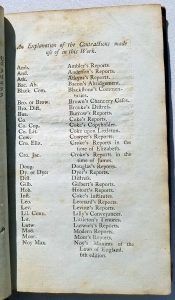 An Explanation of the Contractions made
use of in this Work.
Amb. Ambler's Reports.
And. Anderson's Reports.
Atk. Atkyns's Reports.
Bac. Ab. Bacon's Abridgement.
Black. Com. Blackstone's Commen-
taries.
Bro. or Brow. Brown's Chancery Cases.
Bro. Dist. Brooke's Distress.
Bur. Burrow's Reports.
Co. Coke's Reports.
Co. Cop. Coke's Copyholder.
Co. Lit. Coke upon Littleton.
Cow. Cowper's Reports.
Cro. Eliz. Croke's Reports in the
time of Elizabeth.
Cro. Jac. Croke's Reports in the
time of James.
Doug. Douglas's Reports.
Dy. or Dyer Dyer's Reports.
Dist.
Gilb. Gilbert's Reports.
Hob. Hobart's Reports.
Inst. Coke's Institutes.
Leo. Leonard's Reports.
Lev. Levinz's Reports.
Lil. Conv. Lilly's Conveyancer.
Lit. Littleton's Tenures.
Lutw. Lutwich's Reports.
Mod. Modern Reports.
Moor Moor's Reports.
Noy Max. Noy's Maxims of the
Laws of England
6th edition.